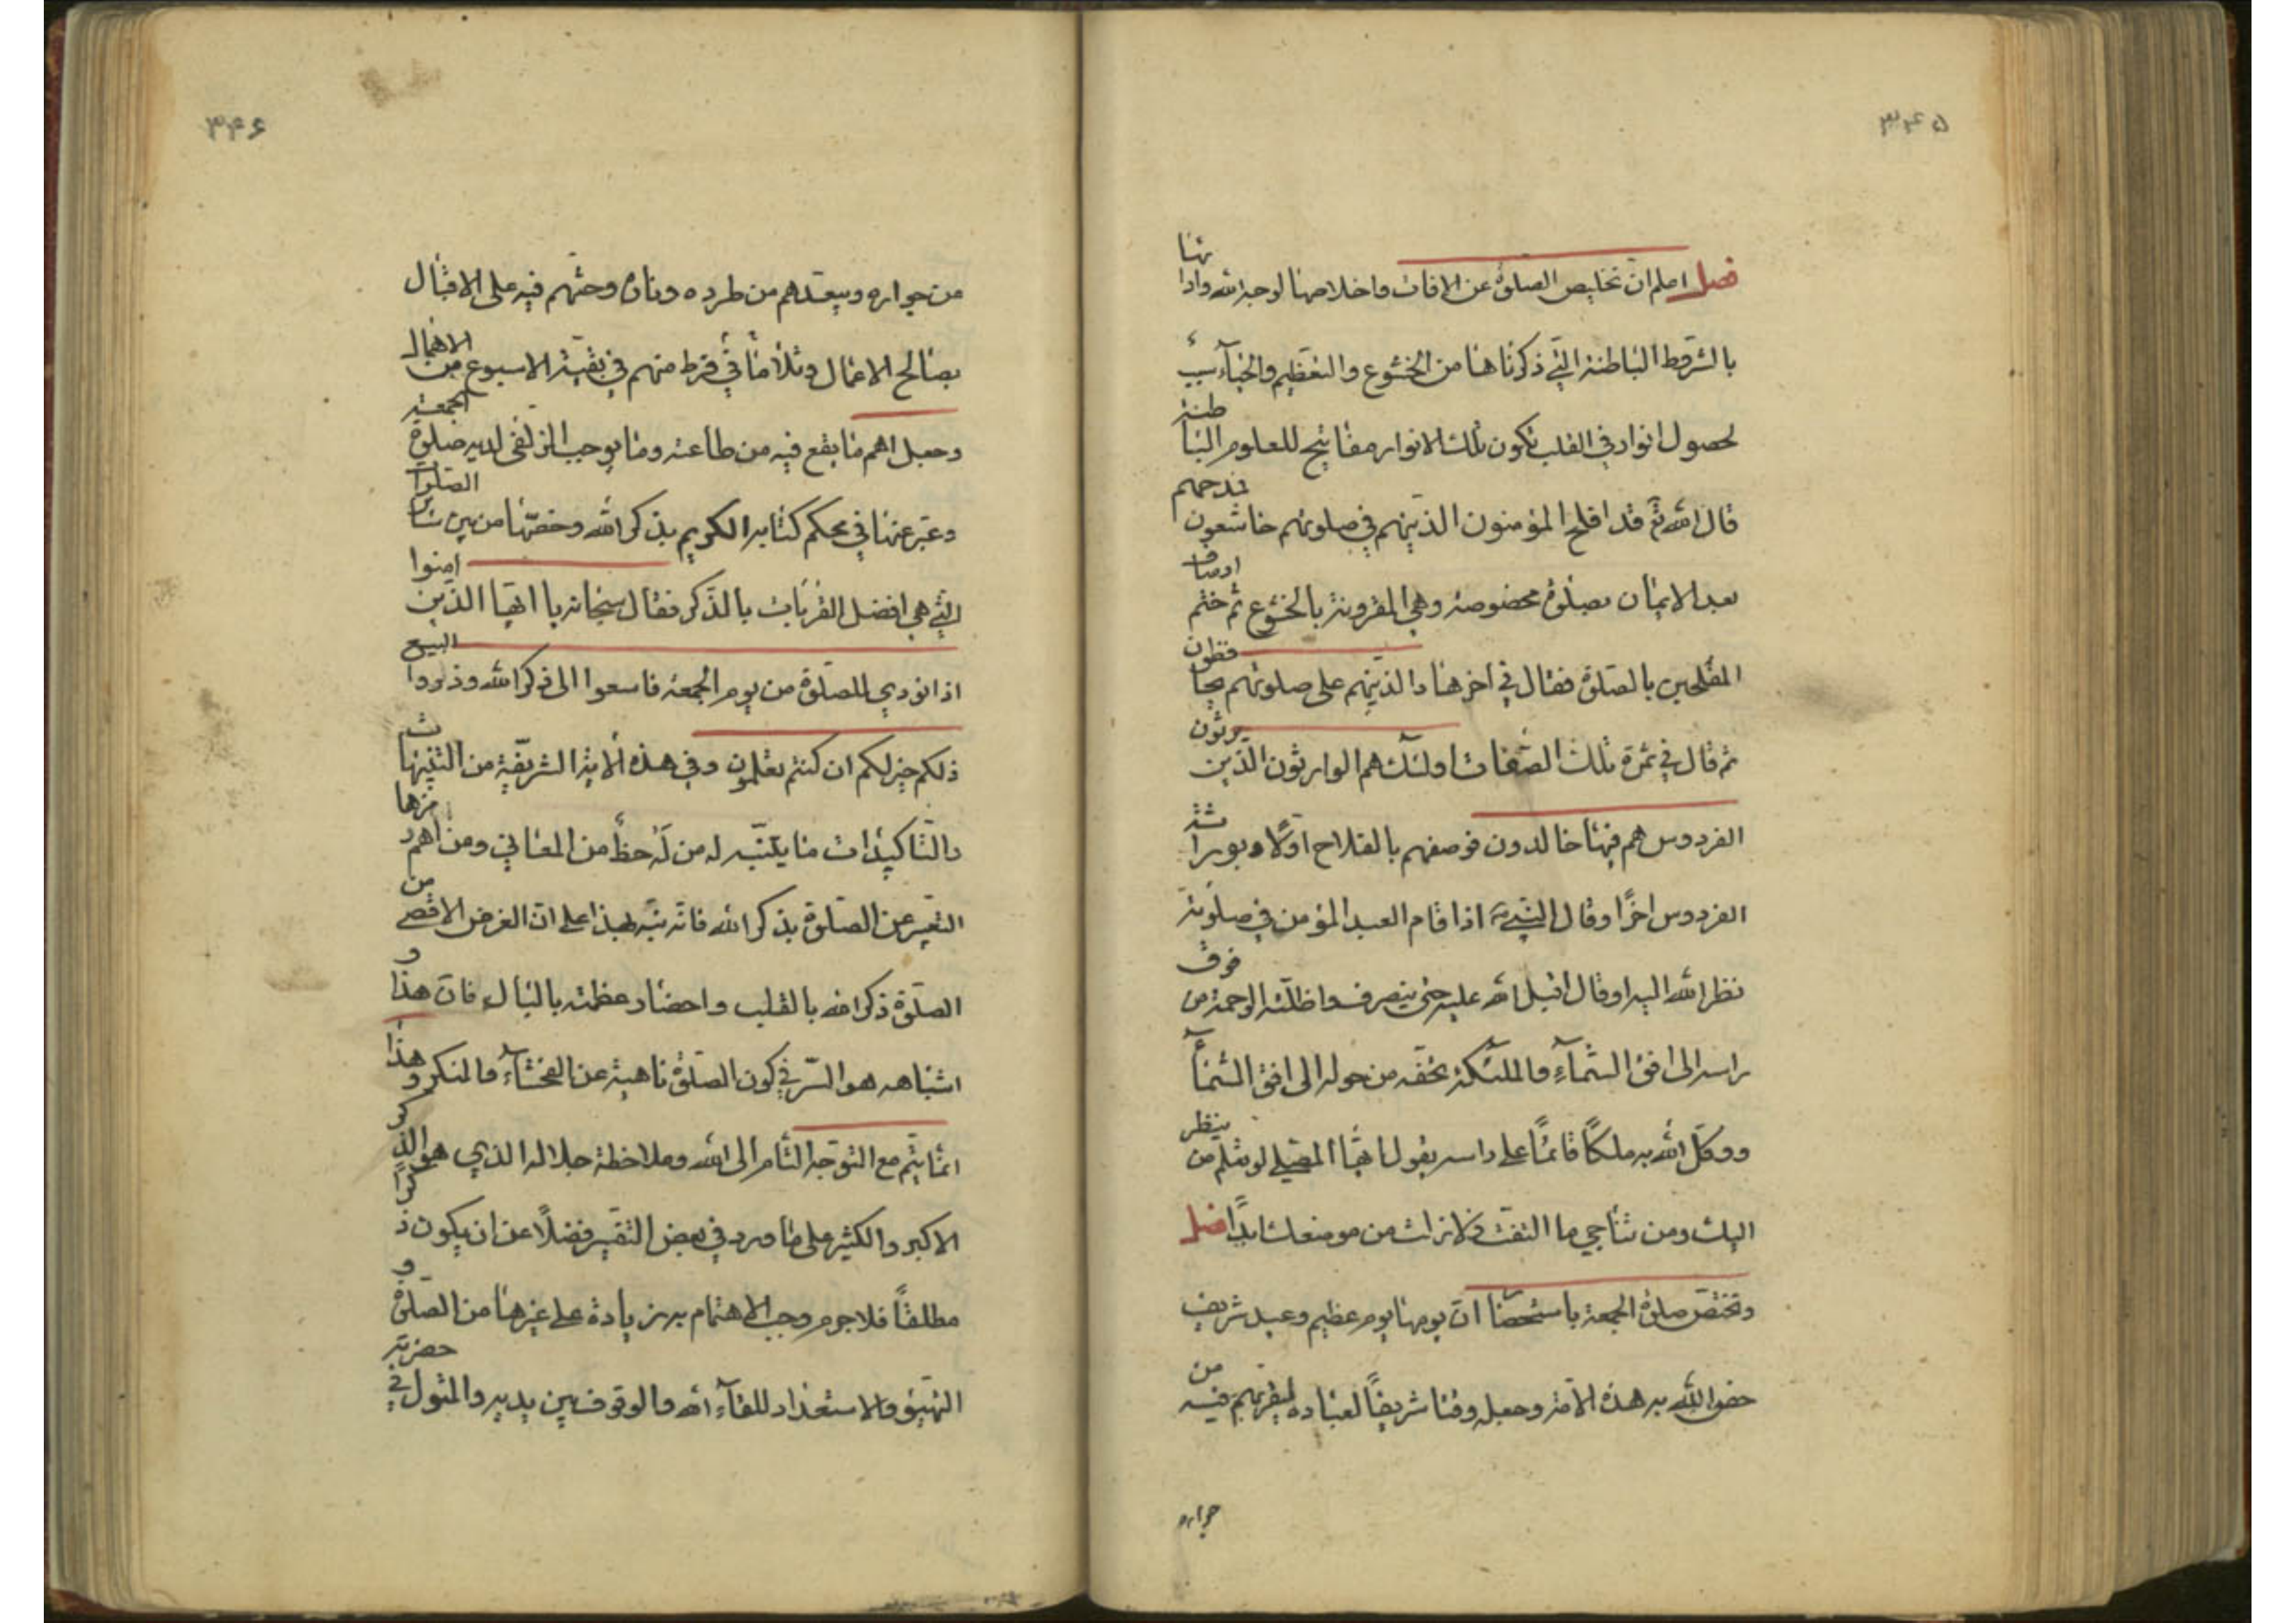 ۳۴۵
فصل اعلم ان تخليص الصلوة عن الافات واخلاصها لوجه الله واداءها
بالشروط الباطنة التي ذكرناها من الخشوع والتعظيم والحياء سبب
لحصول انوار في القلب تكون تلك الانوار مفاتيح للعلوم الباطنة
قال الله تع قد افلح المؤمنون الذينهم في صلوتهم خاشعون فمدحهم
بعد الايمان بصلوة مخصوصة وهي المقرونة بالخشوع ثم ختم اوصاف
المفلحين بالصلوة فقال في اخرها والذينهم على صلوتهم يحافظون
ثم قال في ثمرة تلك الصفات اولئك هم الوارثون الذين يرثون
الفردوس هم فيها خالدون فوصفهم بالفلاح اولا وبوراثة
الفردوس اخرا وقال النبي اذا قام العبد المؤمن في صلوته
نظر الله اليه او قال اقبل الله عليه حتى ينصرف واظلته الرحمة من فوق
راسه الى افق السماء والملئكة تحفه من حوله الى افق السماء
ووكل الله به ملكا قائما على راسه يقول ايها المصلي لو تعلم من ينظر
اليك ومن تناجي ما التفت ولا زلت من موضعك ابدا فصل
وتختص صلوة الجمعة باستحضار ان يومها يوم عظيم وعيد شريف
خص الله به هذه الامة وجعله وقتا شريفا لعباده ليقربهم فيه من
جواره
۳۴۶
من جواره ويبعدهم من طرده وناره وحثهم فيه على الاقبال
بصالح الاعمال وتلافي ما فرط منهم في بقية الاسبوع من الاهمال
وجعل اهم ما يقع فيه من طاعته وما يوجب الزلفى لديه صلوة الجمعة
وعبر عنها في محكم كتابه الكريم بذكر الله وخصها من بين سائر الصلوات
التي هي افضل القربات بالذكر فقال سبحانه يا ايها الذين امنوا
اذا نودي للصلوة من يوم الجمعة فاسعوا الى ذكر الله وذروا البيع
ذلكم خير لكم ان كنتم تعلمون وفي هذه الاية الشريفة من التنبيهات
والتاكيدات ما يتنبه له من له حظ من المعاني ومن اهم رمزها
التعبير عن الصلوة بذكر الله فانه نبه بهذا على ان الغرض الاقصى من
الصلوة ذكر الله بالقلب واحضار عظمته بالبال فان هذا و
اشباهه هو السر في كون الصلوة ناهية عن الفحشاء والمنكر وهذا
انما يتم مع التوجه التام الى الله وملاحظة جلاله الذي هو الذكر
الاكبر والكثير على ما ورد في بعض التفسير فضلا عن ان يكون ذكرا
مطلقا فلا جرم وجب الاهتمام به زيادة على غيرها من الصلوة و
التهيؤ والاستعداد للقاء الله والوقوف بين يديه والمثول في حضرته